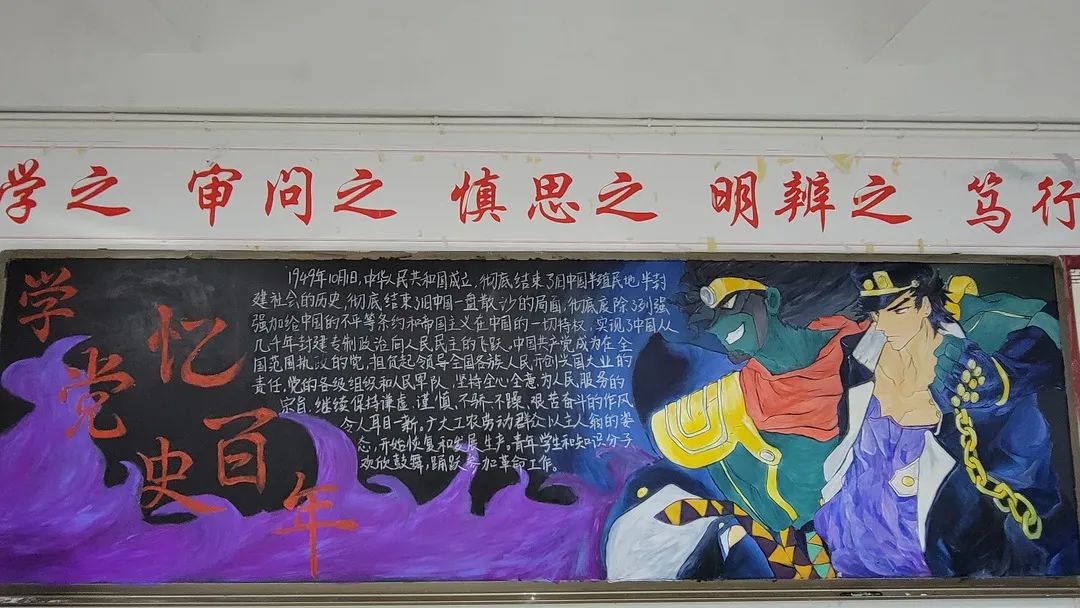 学之 审问之 慎思之 明辨之 笃行
学党史
忆百年
1949年10月1日,中华人民共和国成立,彻底结束了旧中国半殖民地半封
建社会的历史,彻底结束了旧中国一盘散沙的局面,彻底废除了列强
强加给中国的不平等条约和帝国主义在中国的一切特权,实现了中国从
几千年封建专制政治向人民民主的飞跃。中国共产党成为在全
国范围执政的党,担负起领导全国各族人民开创共国大业的
责任。党的各级组织和人民军队,坚持全心全意为人民服务的
宗旨,继续保持谦虚、谨慎、不骄、不躁、艰苦奋斗的作风
令人耳目一新。广大工农劳动群众以主人翁的姿
态,开始恢复和发展生产。青年学生和知识分子
欢欣鼓舞,踊跃参加革命工作。